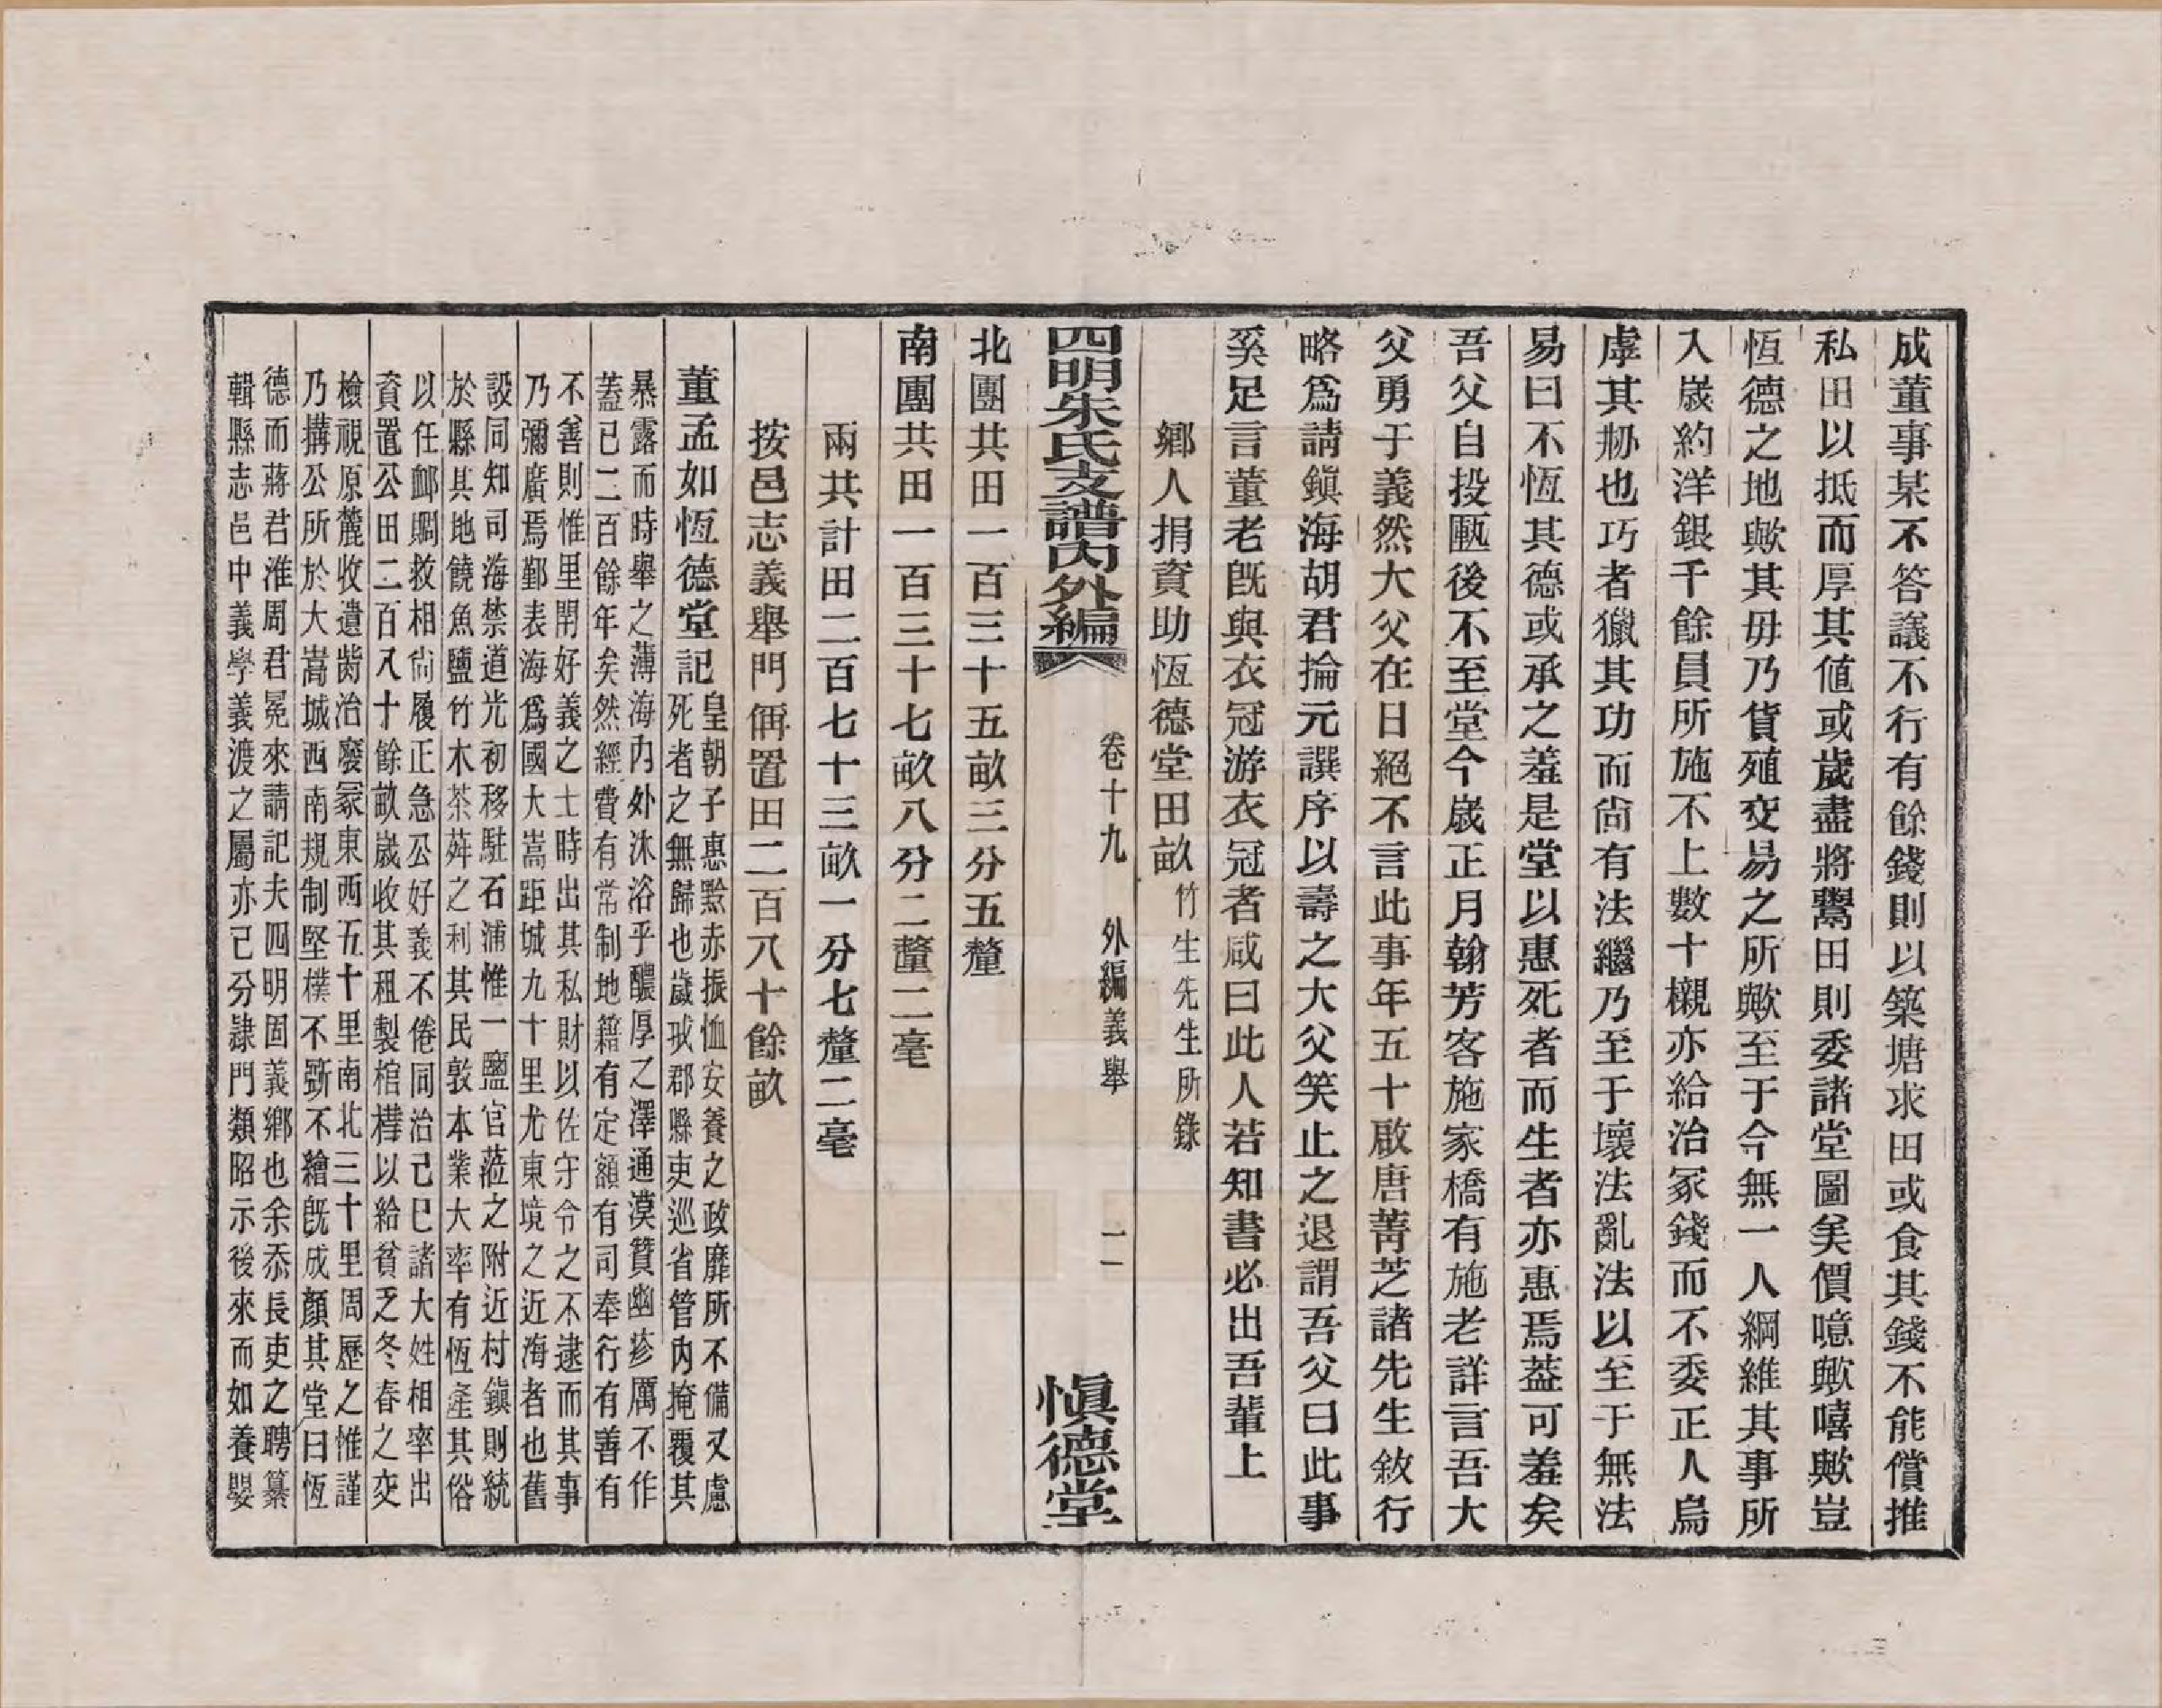 成董事某不答議不行有餘錢則以築塘求田或食其錢不能償推
私田以抵而厚其値或歲盡將鬻田則委諸堂圖矣價噫歟嘻歟豈
恆德之地歟其毋乃貨殖交易之所歟至于今無一人綱維其事所
入歲約洋銀千餘員所施不上數十櫬亦給治冢錢而不委正人烏
虖其刱也巧者獵其功而尙有法繼乃至于壞法亂法以至于無法
易曰不恆其德或承之羞是堂以惠死者而生者亦惠焉葢可羞矣
吾父自投匭後不至堂今歲正月翰芳客施家橋有施老詳言吾大
父勇于義然大父在日絕不言此事年五十啟唐菁芝諸先生敘行
略爲請鎭海胡君掄元譔序以壽之大父笑止之退謂吾父曰此事
奚足言董老旣與衣冠游衣冠者咸曰此人若知書必出吾輩上
鄉人捐資助恆德堂田畝竹生先生所錄
四明朱氏支譜內外編 卷十九 外編義舉 二 愼德堂
北團共田一百三十五畝三分五釐
南團共田一百三十七畝八分二釐二毫
兩共計田二百七十三畝一分七釐二毫
按邑志義舉門偁置田二百八十餘畝
董孟如恆德堂記
皇朝子惠黔赤振恤安養之政靡所不備又慮
死者之無歸也歲戒郡縣吏巡省管內掩覆其
暴露而時舉之薄海內外沐浴乎醲厚之澤通漠贊幽疹厲不作
蓋已二百餘年矣然經費有常制地籍有定額有司奉行有善有
不善則惟里閈好義之士時出其私財以佐守令之不逮而其事
乃彌廣焉鄞表海爲國大嵩距城九十里尤東境之近海者也舊
設同知司海禁道光初移駐石浦惟一鹽官蒞之附近村鎭則統
於縣其地饒魚鹽竹木茶荈之利其民敦本業大率有恆產其俗
以任卹賙救相尙履正急公好義不倦同治己巳諸大姓相率出
資置公田二百八十餘畝歲收其租製棺槥以給貧乏冬春之交
檢視原麓收遺胔治廢冢東西五十里南北三十里周歷之惟謹
乃搆公所於大嵩城西南規制堅樸不斵不繪旣成顏其堂曰恆
德而蔣君淮周君冕來請記夫四明固義鄉也余忝長吏之聘纂
輯縣志邑中義學義渡之屬亦已分隷門類昭示後來而如養嬰